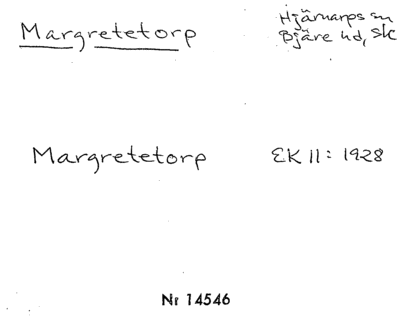 Margretetorp
Hjärnarps sn
Bjäre hd, Sk
Margretetorp
EK 11: 1928
Nr 14546